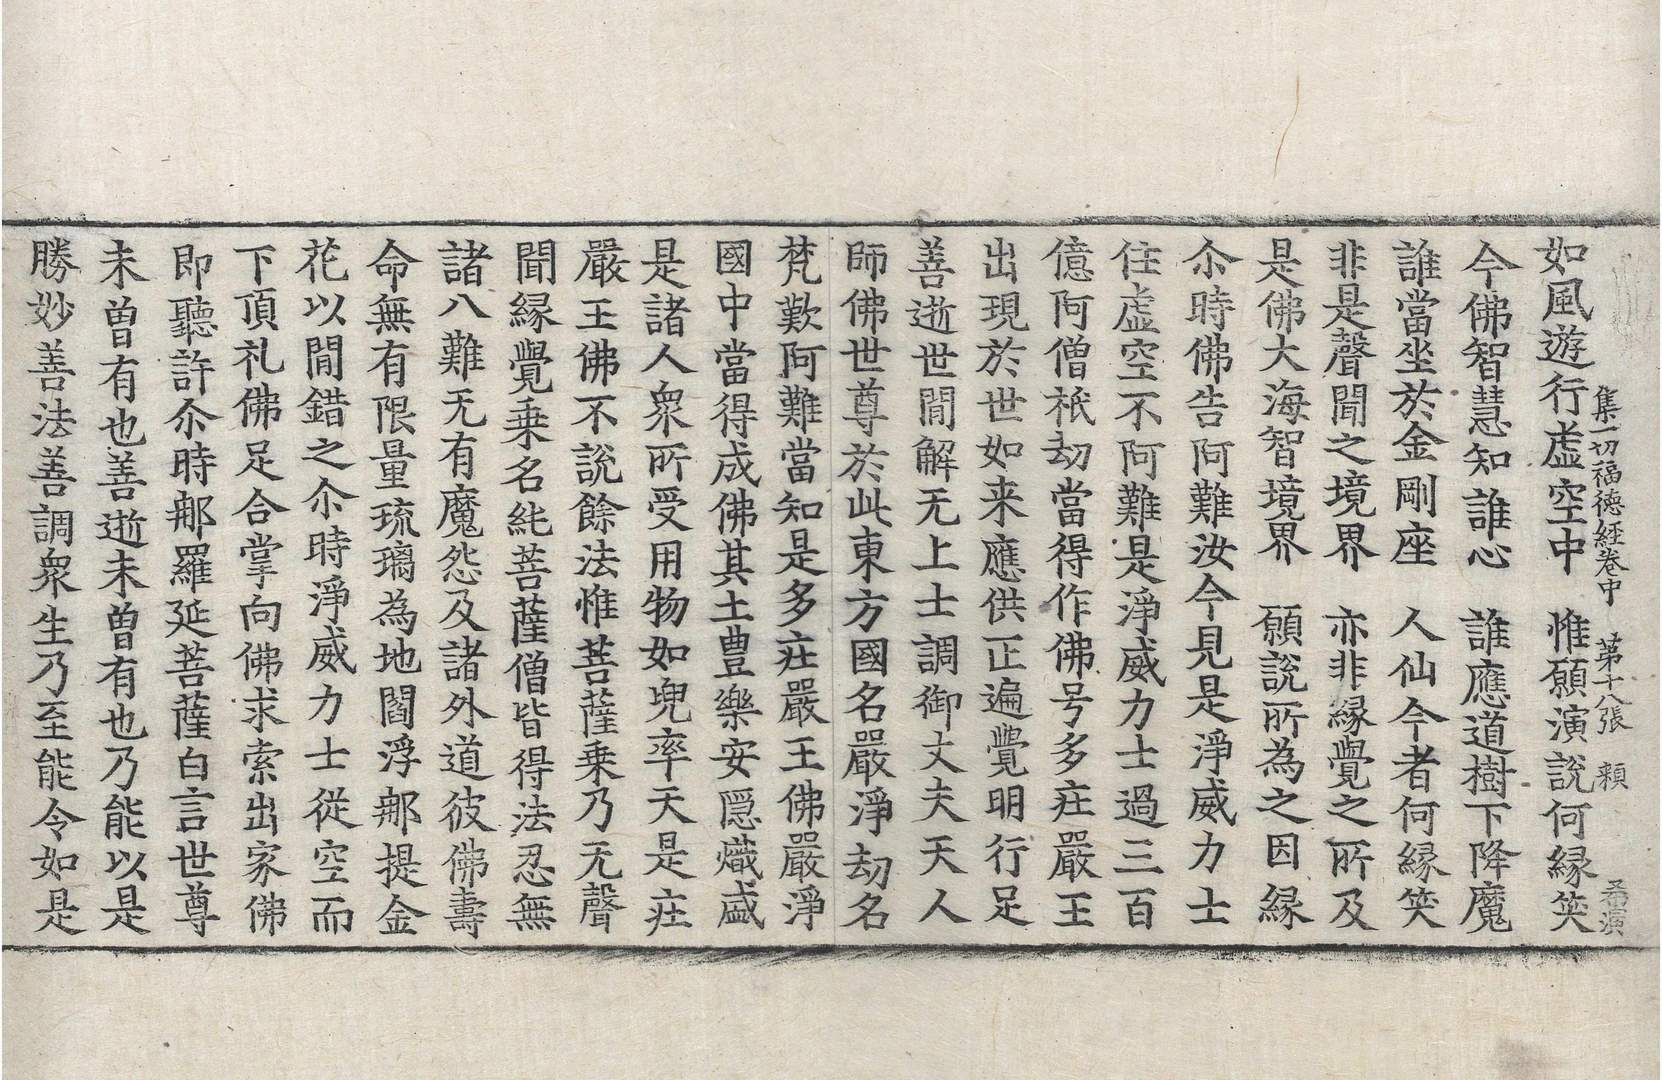 集一切福德經卷中 第十八張 頼 希演
如風遊行虛空中 惟願演說何緣笑
今佛智慧知誰心 誰應道樹下降魔
誰當坐於金剛座 人仙今者何緣笑
非是聲聞之境界 亦非緣覺之所及
是佛大海智境界 願說所為之因緣
尒時佛告阿難汝今見是淨威力士
住虛空不阿難是淨威力士過三百
億阿僧祇劫當得作佛号多庄嚴王
出現於世如来應供正遍覺明行足
善逝世間解无上士調御丈夫天人
師佛世尊於此東方國名嚴淨劫名
梵歎阿難當知是多庄嚴王佛嚴淨
國中當得成佛其土豊樂安隠熾盛
是諸人衆所受用物如兜率天是庄
嚴王佛不說餘法惟菩薩乗乃无聲
聞緣覺乗名純菩薩僧皆得法忍無
諸八難无有魔怨及諸外道彼佛壽
命無有限量琉璃為地閻浮郍提金
花以間錯之尒時淨威力士從空而
下頂礼佛足合掌向佛求索出家佛
即聽許尒時郍羅延菩薩白言世尊
未曽有也善逝未曽有也乃能以是
勝妙善法善調衆生乃至能令如是